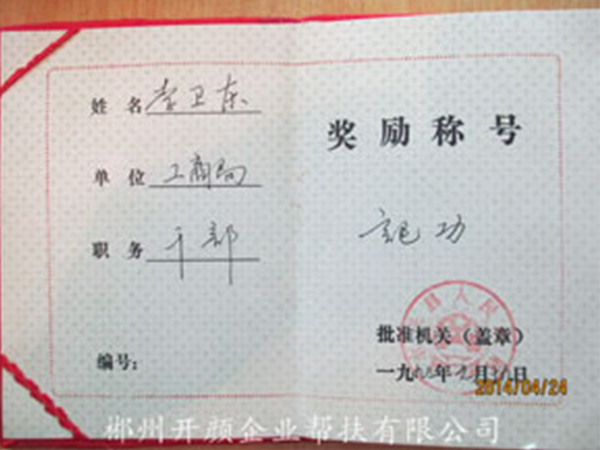 姓 名 李卫东
单 位 工商局
职 务 干部
编号:
奖励称号
记功
批准机关(盖章)
一九 年 月 日
2014/04/24
郴州开颜企业帮扶有限公司